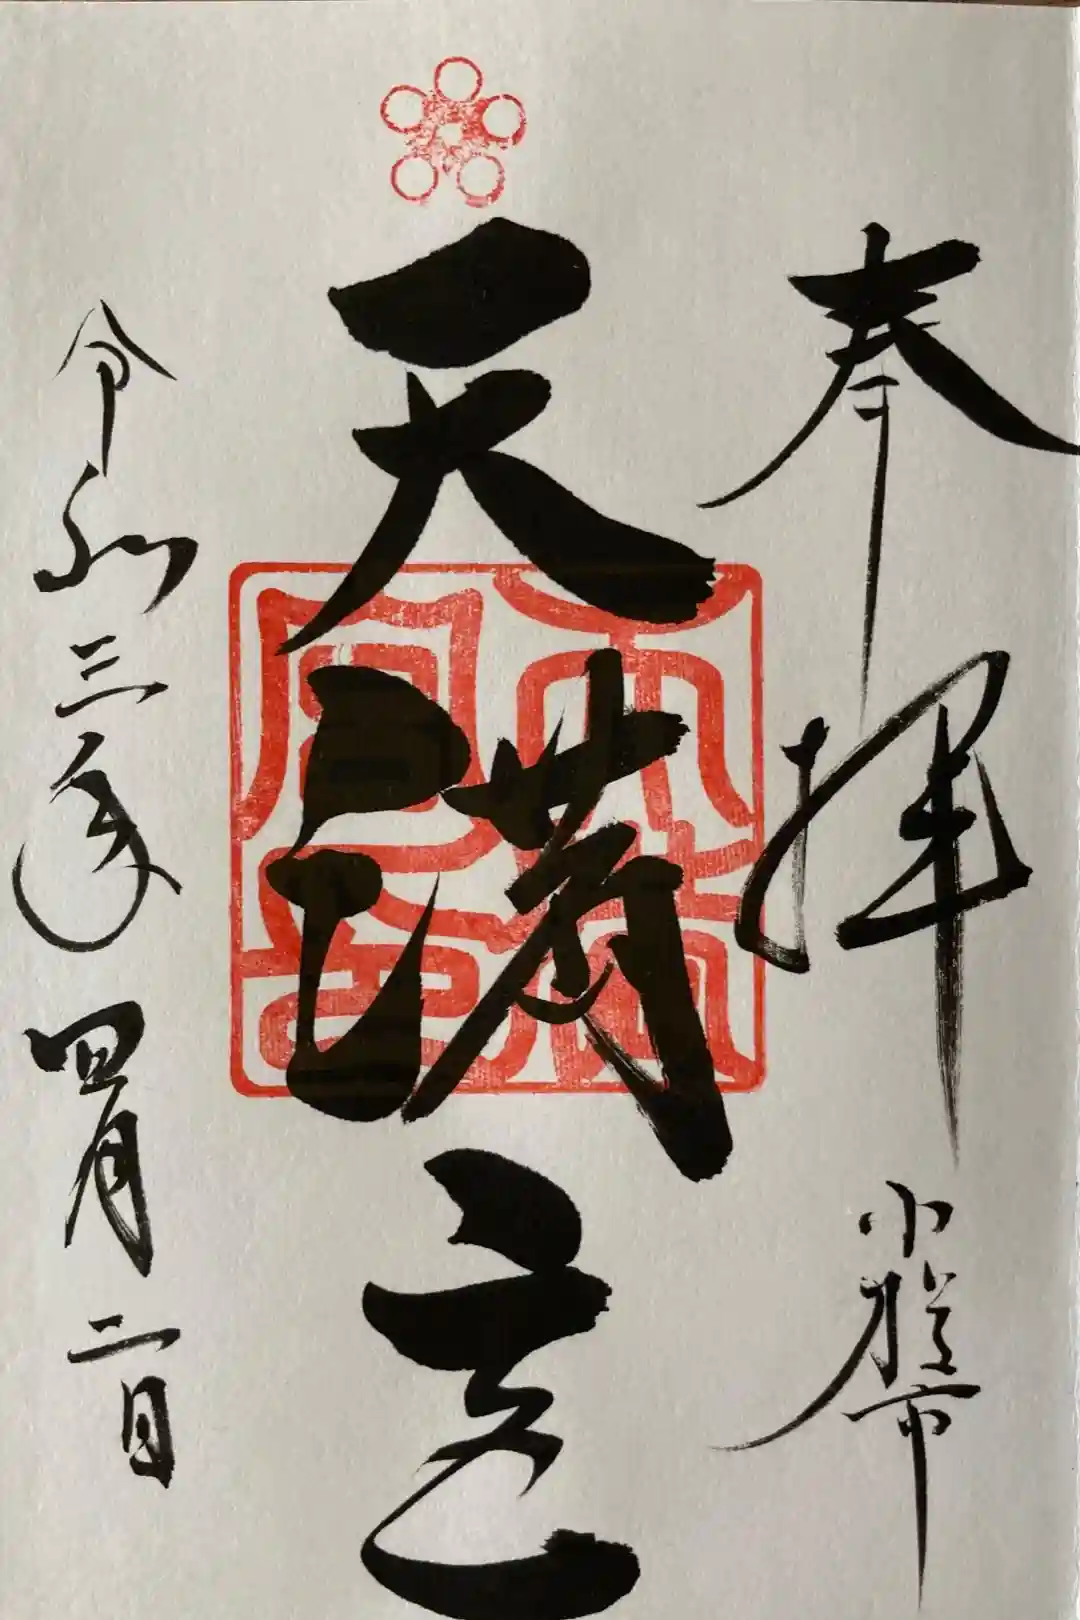 奉拝 小松市
天満宮
令和三年四月二日